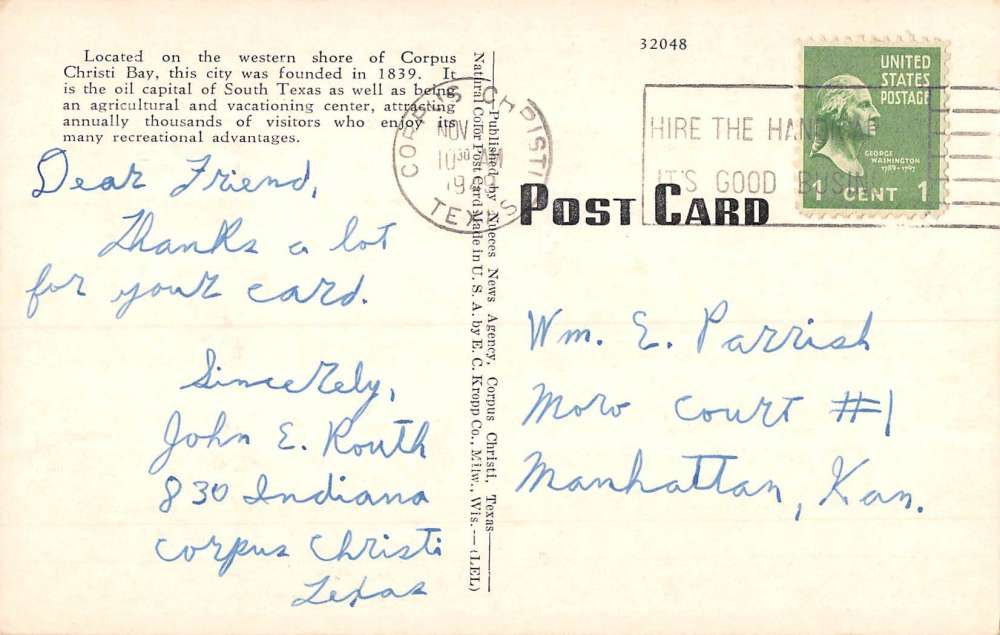 Located on the western shore of Corpus
Christi Bay, this city was founded in 1839. It
is the oil capital of South Texas as well as being
an agricultural and vacationing center, attracting
annually thousands of visitors who enjoy its
many recreational advantages.
Dear Friend,
Thanks a lot
for your card.
Sincerely,
John E. Routh
830 Indiana
Corpus Christi
Texas
Published by Nueces News Agency, Corpus Christi, Texas
Natural Color Post Card Made in U. S. A. by E. C. Kropp Co., Milw., Wis. — (LEL)
32048
CORPUS CHRISTI
NOV
10 30 AM
TEXAS
HIRE THE
IT'S GOOD
UNITED
STATES
POSTAGE
GEORGE
WASHINGTON
1789-1797
1 CENT 1
POST CARD
Wm. E. Parrish
Moro Court #1
Manhattan, Kan.